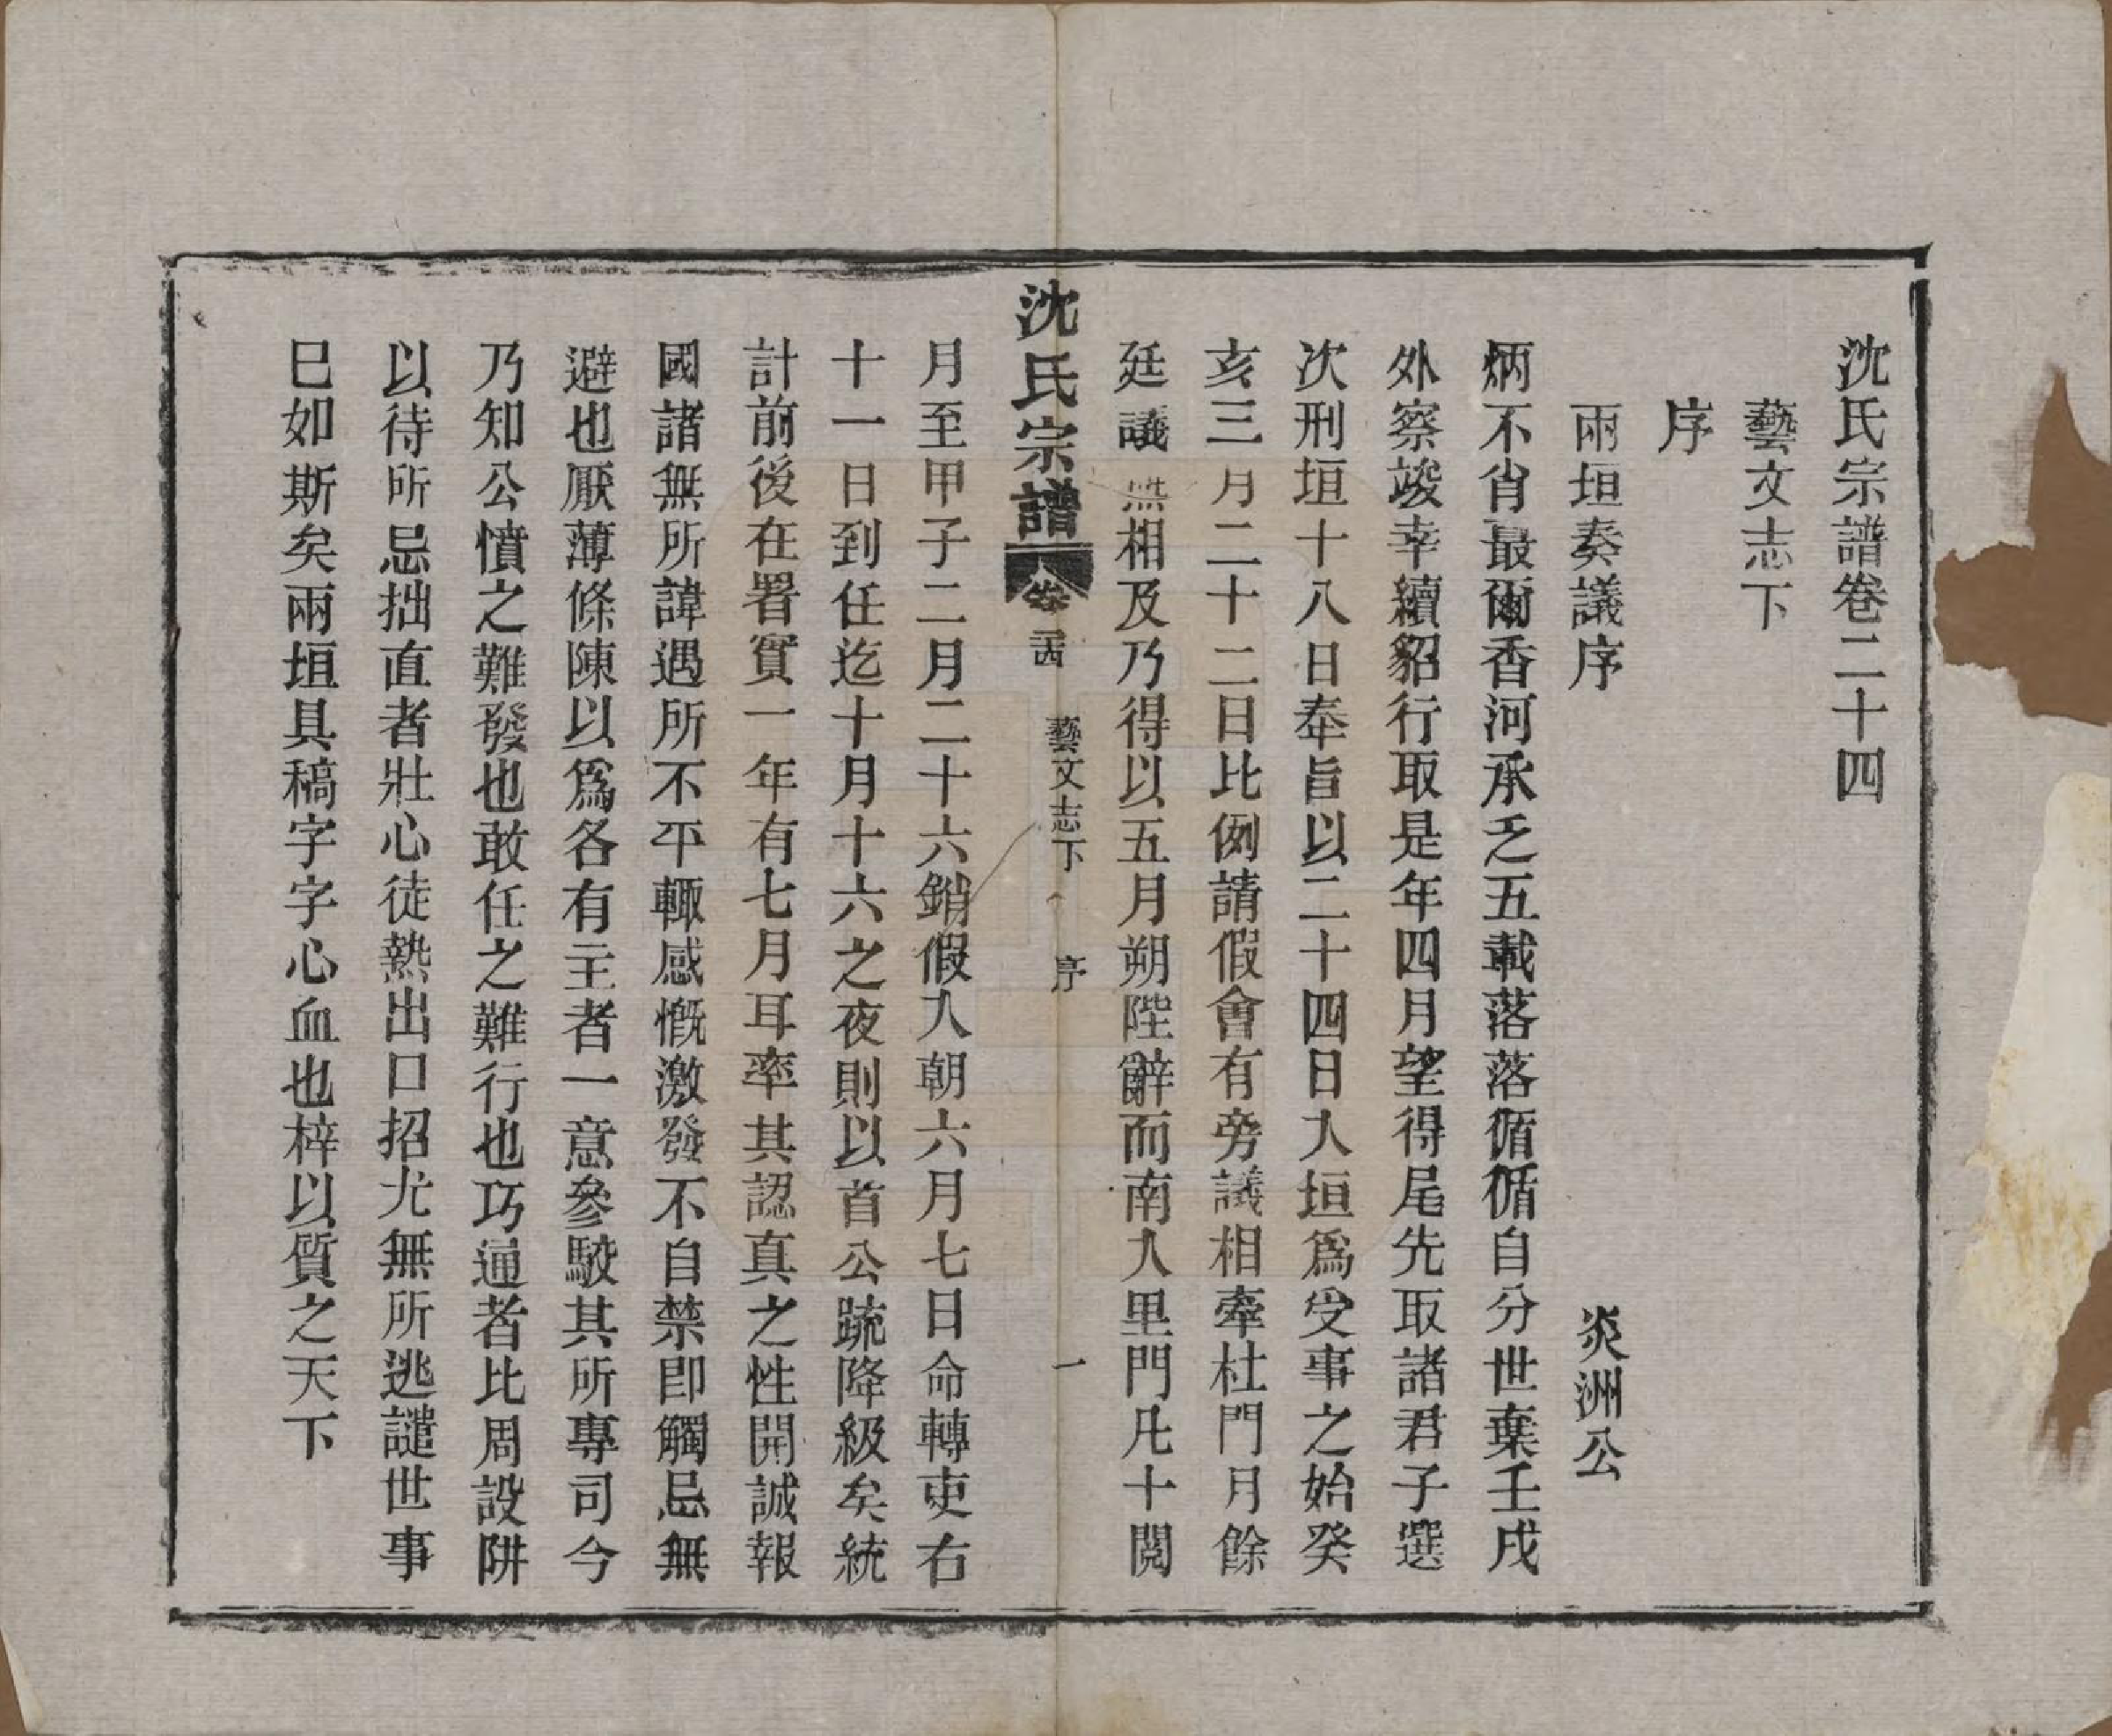 沈氏宗譜卷二十四
藝文志下
序
兩垣奏議序
炎洲公
炳不肖最爾香河承乏五載落落循循自分世棄壬戌
外察竣幸續貂行取是年四月望得尾先取諸君子選
次刑垣十八日奉旨以二十四日入垣爲受事之始癸
亥三月二十二日比例請假會有旁議相牽杜門月餘
廷議無相及乃得以五月朔陛辭而南入里門凡十閱
沈氏宗譜
卷二十四
藝文志下
序
一
月至甲子二月二十六銷假入朝六月七日命轉吏右
十一日到任迄十月十六之夜則以首公疏降級矣統
計前後在署實一年有七月耳率其認真之性開誠報
國諸無所諱遇所不平輒感慨激發不自禁卽觸忌無
避也厭薄條陳以爲各有主者一意參駮其所專司今
乃知公憤之難發也敢任之難行也巧通者比周設阱
以待所忌拙直者壯心徒熱出口招尤無所逃譴世事
巳如斯矣兩垣具稿字字心血也梓以質之天下